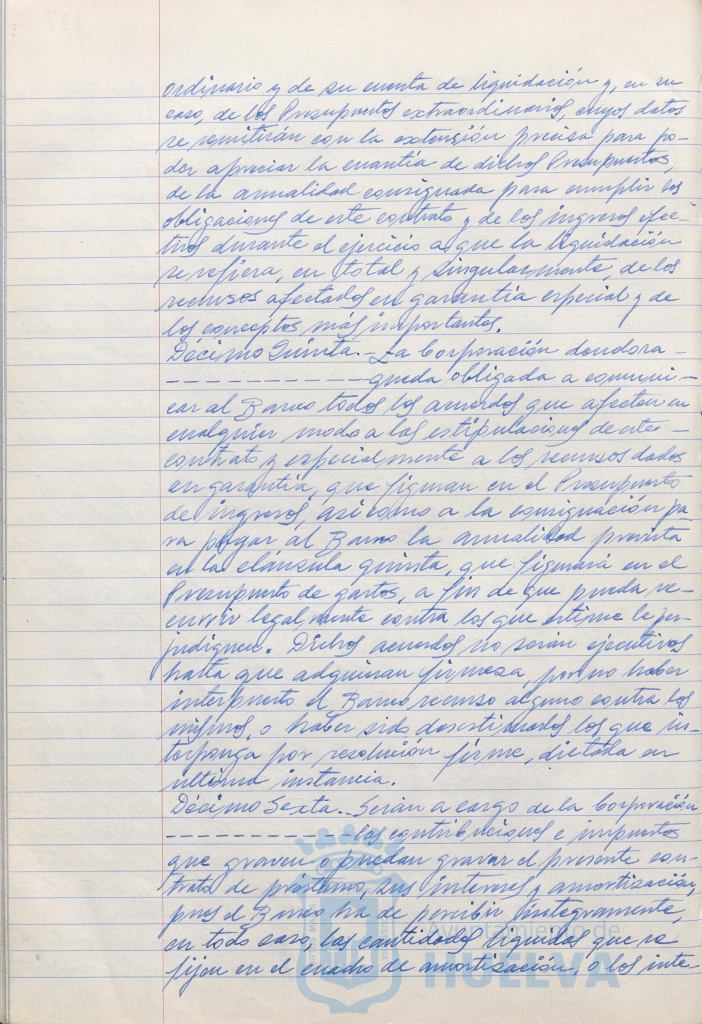 ordinario y de su cuenta de liquidación y, en su
caso, de los Presupuestos extraordinarios, cuyos datos
se remitirán con la extensión precisa para po-
der apreciar la cuantía de dichos Presupuestos,
de la anualidad consignada para cumplir las
obligaciones de este contrato y de los ingresos efec-
tivos durante el ejercicio a que la liquidación
se refiera, en total y singularmente, de los
recursos afectados en garantía especial y de
los conceptos más importantes.
Décimo Quinta.- La Corporación deudora -
- - - - - - - - - - - queda obligada a comuni-
car al Banco todos los acuerdos que afecten en
cualquier modo a las estipulaciones de este -
contrato y especialmente a los recursos dados
en garantía, que figuran en el Presupuesto
de ingresos, así como a la consignación pa
ra pagar al Banco la anualidad prevista
en la cláusula quinta, que figurará en el
Presupuesto de gastos, a fin de que pueda re-
currir legalmente contra los que estime le per-
judiquen. Dichos acuerdos no serán ejecutivos
hasta que adquieran firmeza, por no haber
interpuesto el Banco recurso alguno contra los
mismos, o haber sido desestimados los que in-
terponga por resolución firme, dictada en
última instancia.
Décimo Sexta.- Serán a cargo de la Corporación
- - - - - - - - - - - las contribuciones e impuestos
que graven o puedan gravar el presente con-
trato de préstamo, sus intereses y amortización,
pues el Banco ha de percibir íntegramente,
en todo caso, las cantidades líquidas que se
fijen en el cuadro de amortización, o los inte-
Ayuntamiento de
HUELVA